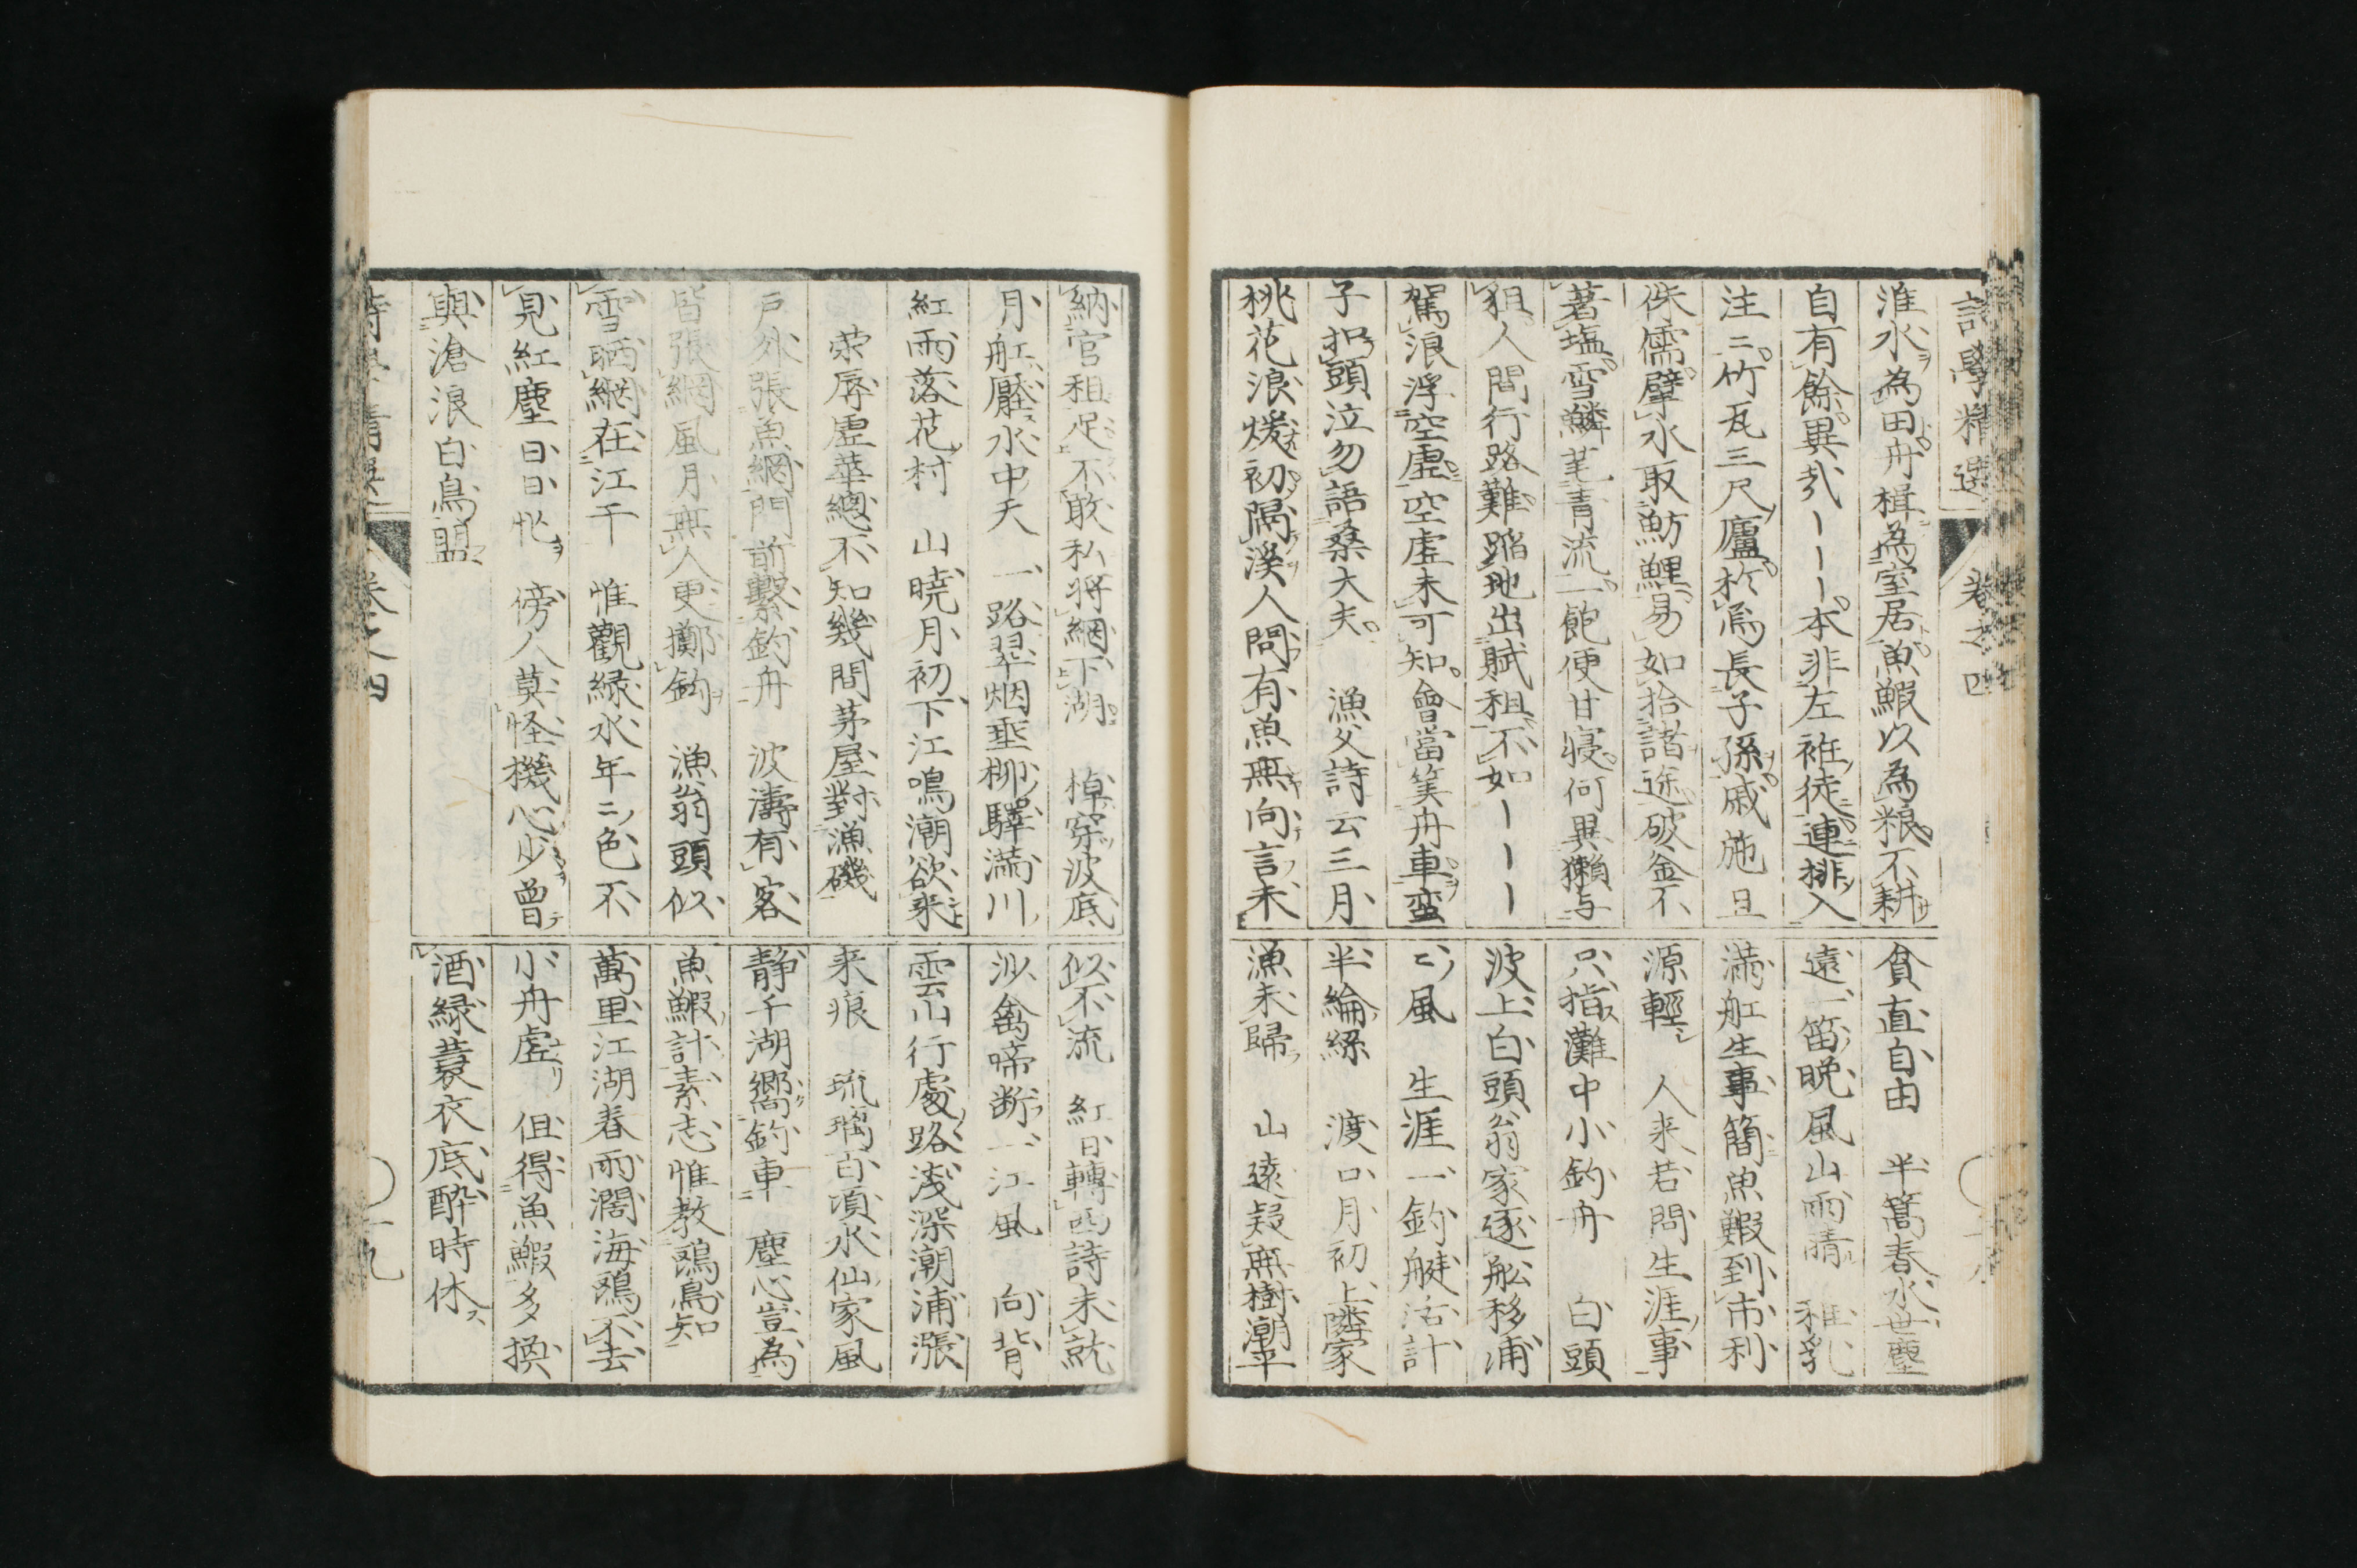 詩學精選 卷之四
淮水為田舟楫為室居魚鰕以為粮不耕
自有餘異哉〡〡〡本非左袵徒連排入
注ニ竹瓦三尺廬於焉長子孫戚施且
侏儒擘水取魴鯉易如拾諸途破釜不
著塩雪鱗芼青流一飽便甘寝何異獺与
狙人間行路難踏地出賦租不如〡〡〡
駕浪浮空虚空虚未可知會當筭舟車蛮
子扣頭泣勿語桑大夫 漁父詩云三月
桃花浪煖初隔溪人問有魚無向言未
貧直自由 半篙春水世塵
遠一笛晩風山雨晴 雅乳
満舡生事簡魚鰕到市利
源輕 人来若問生涯事
只指灘中小釣舟 白頭
波上白頭翁家逐舩移浦
ミ風 生涯一釣艇活計
半綸緡 渡口月初上隣家
漁未歸 山遠疑無樹潮平
納官租足不敢私将網下湖 棹穿波底
月舡壓水中天 一路翠烟垂柳驛満川
紅雨落花村 山曉月初下江鳴潮欲来
荣辱虚華總不知幾間茅屋對漁磯
戸外張魚網門前繫釣舟 波濤有客
皆張網風月無人更擲鈎 漁翁頭似
雪晒網在江干 惟觀緑水年ニ色不
見紅塵日日忙 傍人莫怪機心少曽
與滄浪白鳥盟
似不流 紅日轉西詩未就
沙禽啼断一江風 向背
雲山行處路浅深潮浦漲
来痕 琉璃百頃水仙家風
静千湖嚮釣車 塵心豈為
魚鰕計素志惟教鷗鳥知
萬里江湖春雨濶海鷗不去
小舟虚 但得魚鰕多換
酒緑蓑衣底酔時休
卷之四 十九